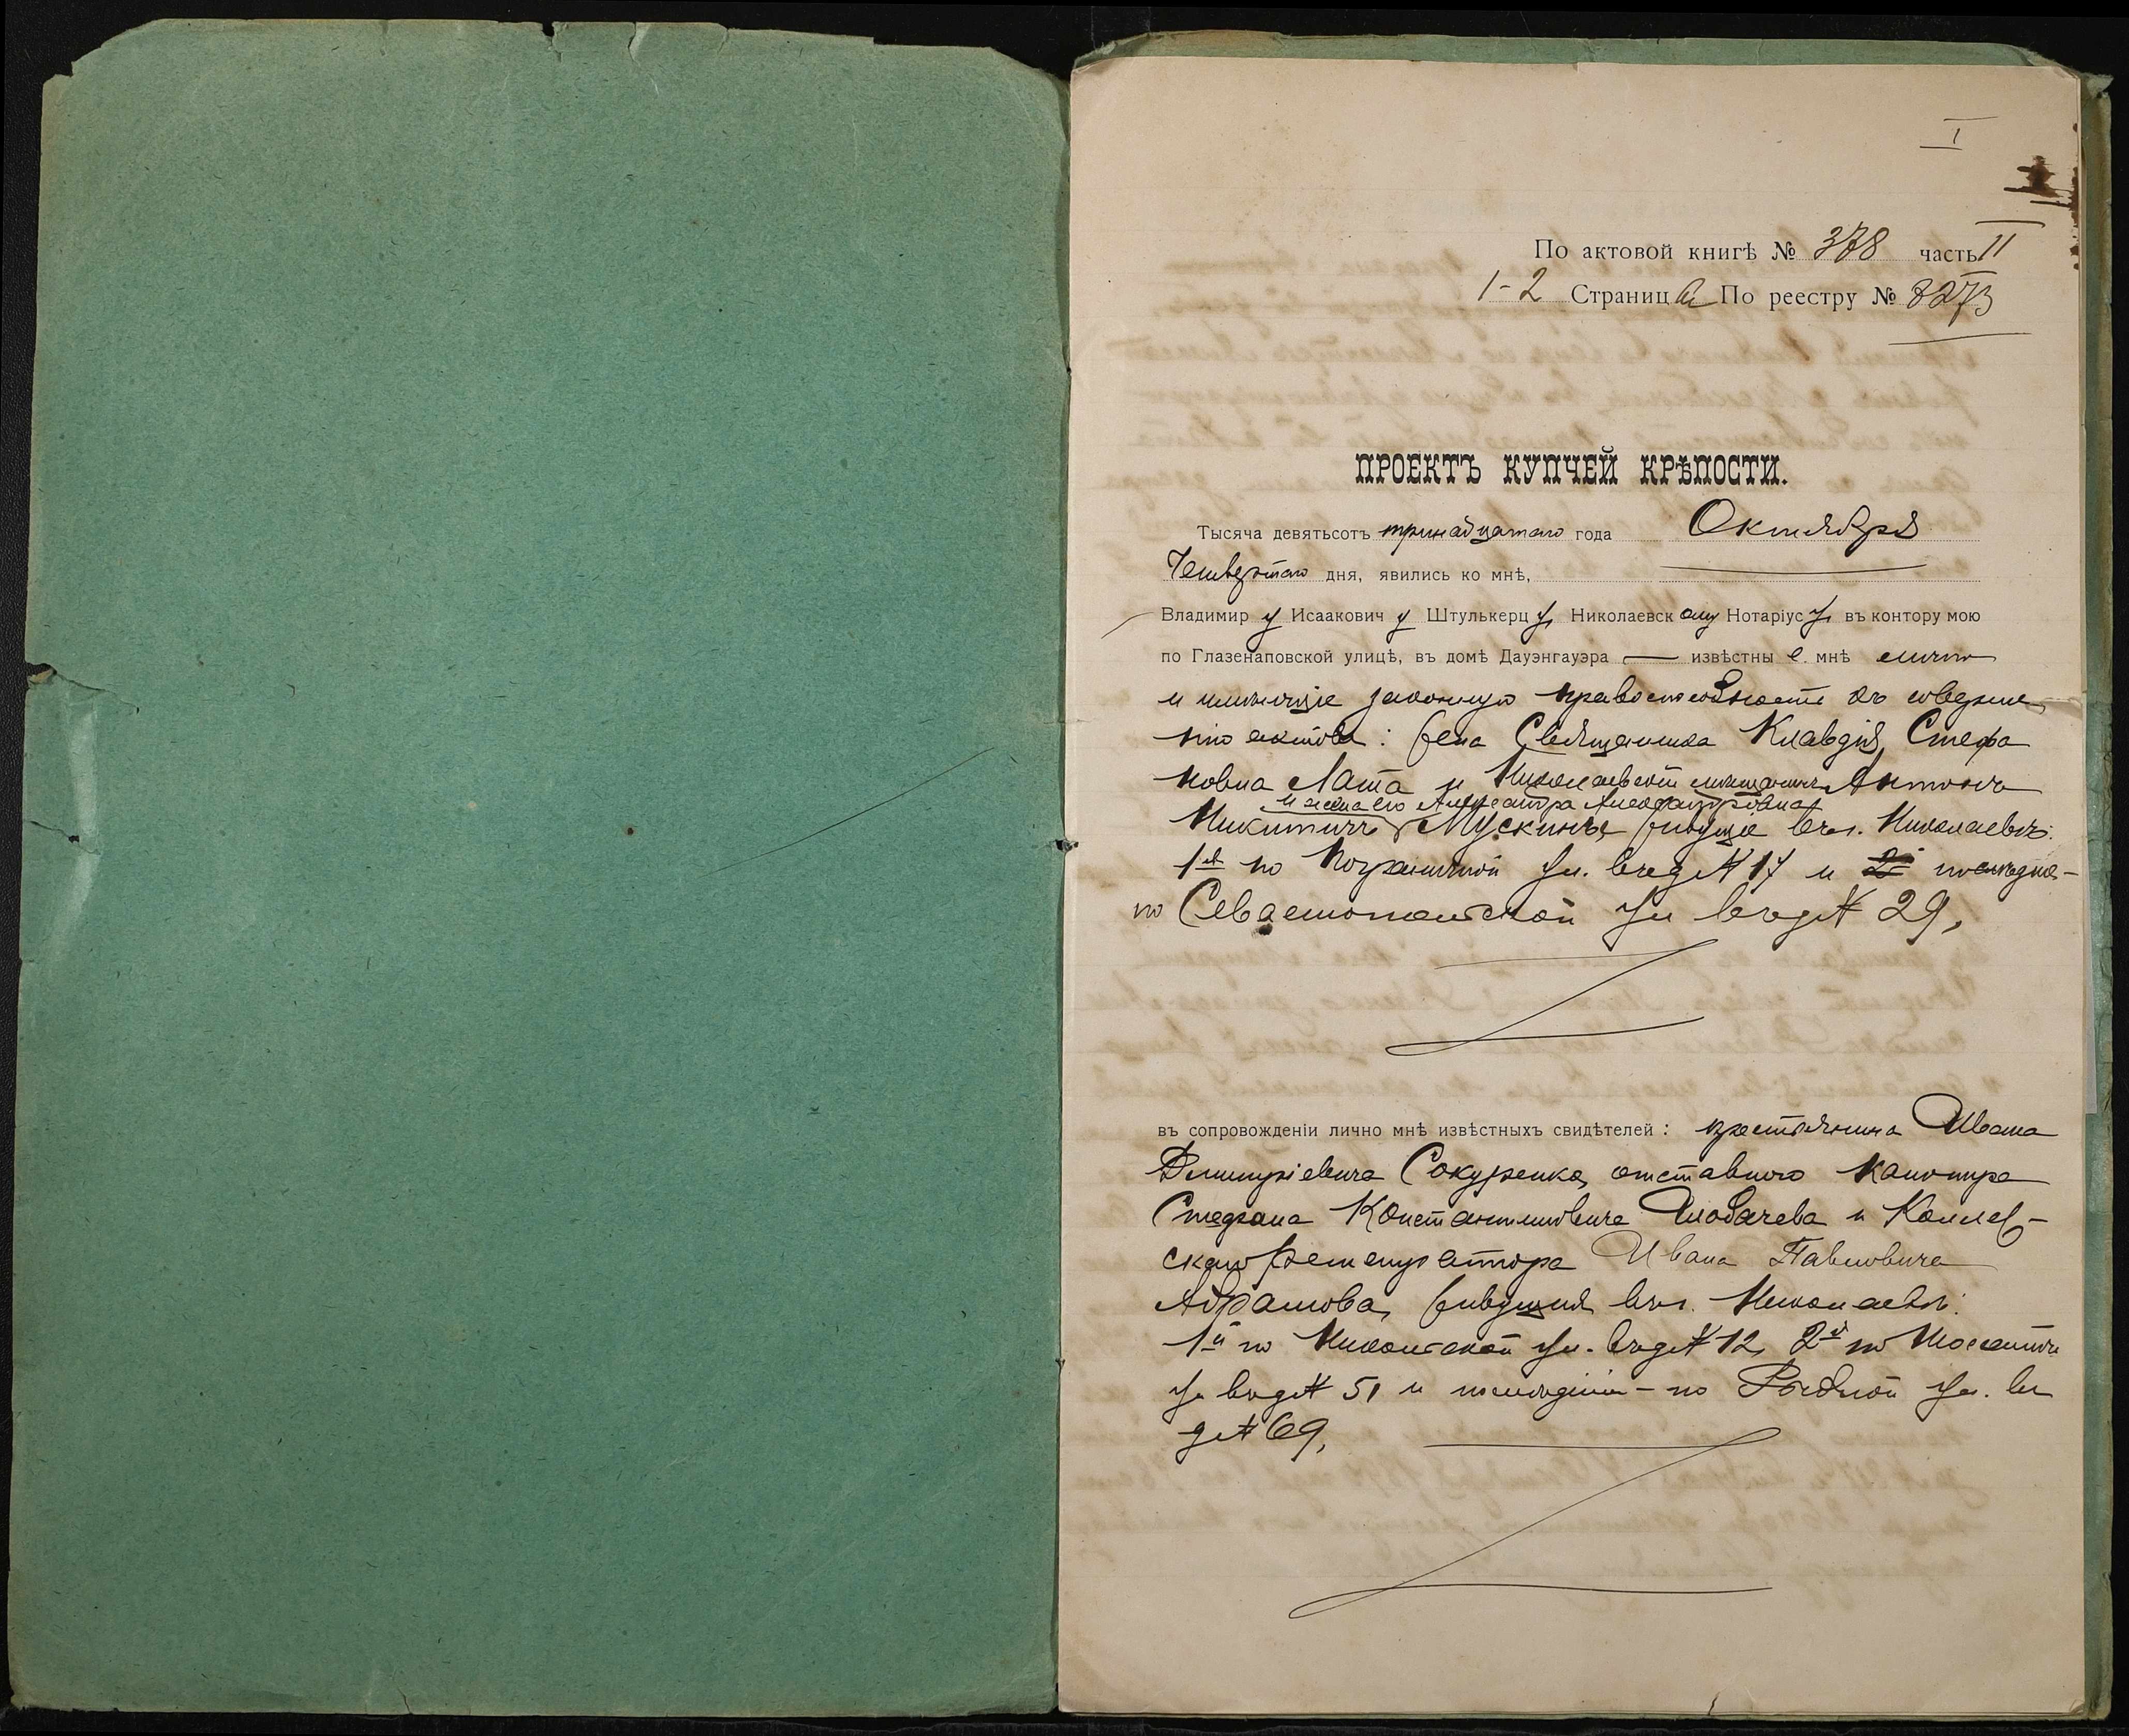 I
По актовой книгѣ № 378 часть II
1-2 Страница По реестру № 8273
ПРОЕКТЪ КУПЧЕЙ КРѢПОСТИ.
Тысяча девятьсотъ тринадцатаго года Октября
Четвертаго дня, явились ко мнѣ,
Владимир у Исаакович у Штулькерц у, Николаевск ому Нотаріус у, въ контору мою
по Глазенаповской улицѣ, въ домѣ Дауэнгауэра — извѣстны е мнѣ лично
и имѣющіе законную правоспособность къ соверше
нію актовъ: жена Священника Клавдія Стефа
новна Лата и Николаевскій мѣщанинъ Антонъ
и жена его Александра Александровна
Никитичъ Мускинъ, живущіе въ г. Николаевѣ:
1я по Пограничной ул. въ д № 17 и послѣдніе-
по Севастопольской ул въ д № 29,
въ сопровожденіи лично мнѣ извѣстныхъ свидѣтелей: крестьянина Ивана
Димитріевича Сокуренко, отставного канонира
Стефана Константиновича и Коллеж-
скаго Регистратора Ивана Павловича
Абрамова, живущихъ въ г. Николаевѣ:
1й по Никольской ул. въ д № 12, 2й по
ул въ д № 51 и послѣдній - по Рыбной ул. въ
д № 69,